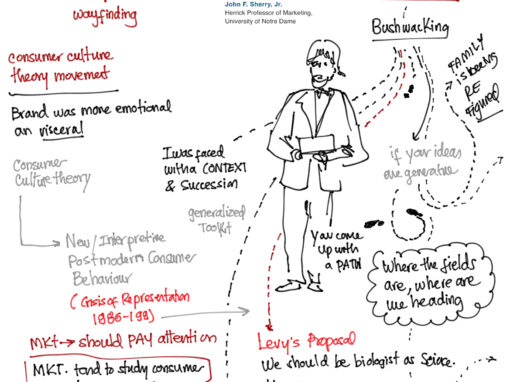 wayfinding
John F. Sherry, Jr.
Herrick Professor of Marketing,
University of Notre Dame
Bushwacking
FAMILY
is being
RE
Figured
Consumer culture
theory movement
Brand was more emotional
an visceral
Consumer
Culture theory
I was faced
with a CONTEXT
& Succession
generalized
Toolkit
if your ideas
are generative
New/Interpretive
Postmodern Consumer
Behaviour
(Crisis of Representation
1986-199)
You come
up with
a PATH
Where the fields
are, where are
we heading
MKt → should PAY attention
MKT. tend to study consumer
Levy's Proposal
We should be biologist as Science.